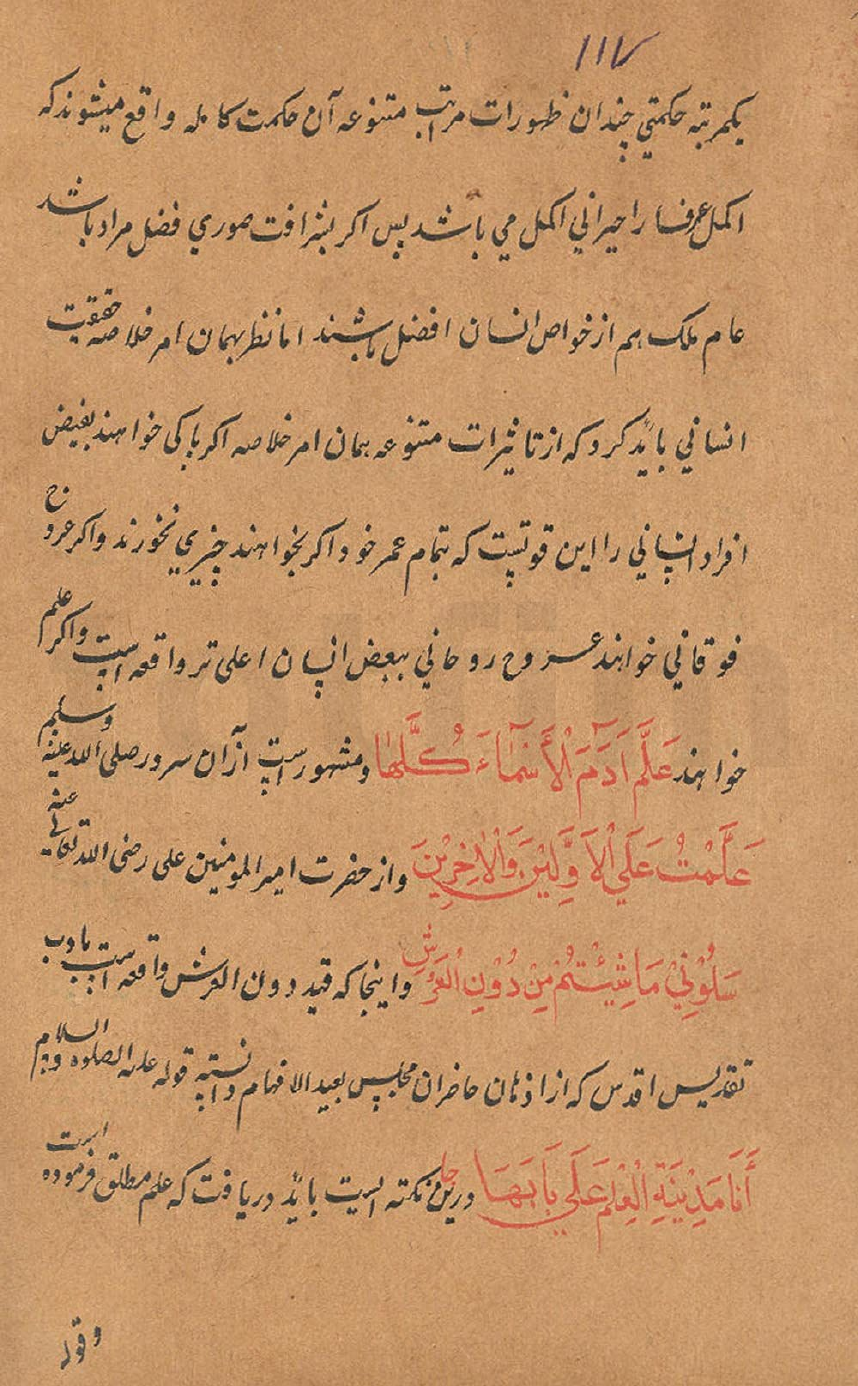 ۱۱۷
یکمرتبه حکمتي چندان ظهورات مراتب متنوعه آن حکمت کامله واقع میشوند که
اکمل عرفا را حیراني اکمل مي باشد پس اکر بشرافت صوري فضل مراد باشد
عام ملک هم از خواص انسان افضل باشند اما نظر بهمان امر خلاصه حقیقت
انساني باید کرد که از تاثیرات متنوعه همان امر خلاصه اکر پاکی خواهند بعیض
افراد انساني را این قوتیست که بتمام عمر خود اکر بخواهند چیزي نخورند و اکر عروج
فوقاني خواهند عروج روحاني ببعض انسان اعلی تر واقعه است و اکر علم
خواهند عَلَّمَ اٰدَمَ الْأَسْمَاءَ كُلَّهَا و مشهور است از آن سرور صلی الله علیه وسلم
عَلَّمْتُ عَلَي الْأَوَّلِيْنَ وَالْاٰخِرِيْنَ و از حضرت امیر المومنین علی رضی الله تعالی عنه
سَلُوْنِيْ مَا شِيْئتُمْ مِنْ دُوْنِ الْعَرْشِ و اینجا که قید دون العرش واقعه است بادب
تقدیس اقدس که از اذهان حاضران مجلس بعید الافهام دانسته قوله علیه الصلوة والسلام
أَنَا مَدِيْنَةِ الْعِلْمِ عَلَي بَابَهَا درین جا نکته ایست باید دریافت که علم مطلق فرموده است
وقود